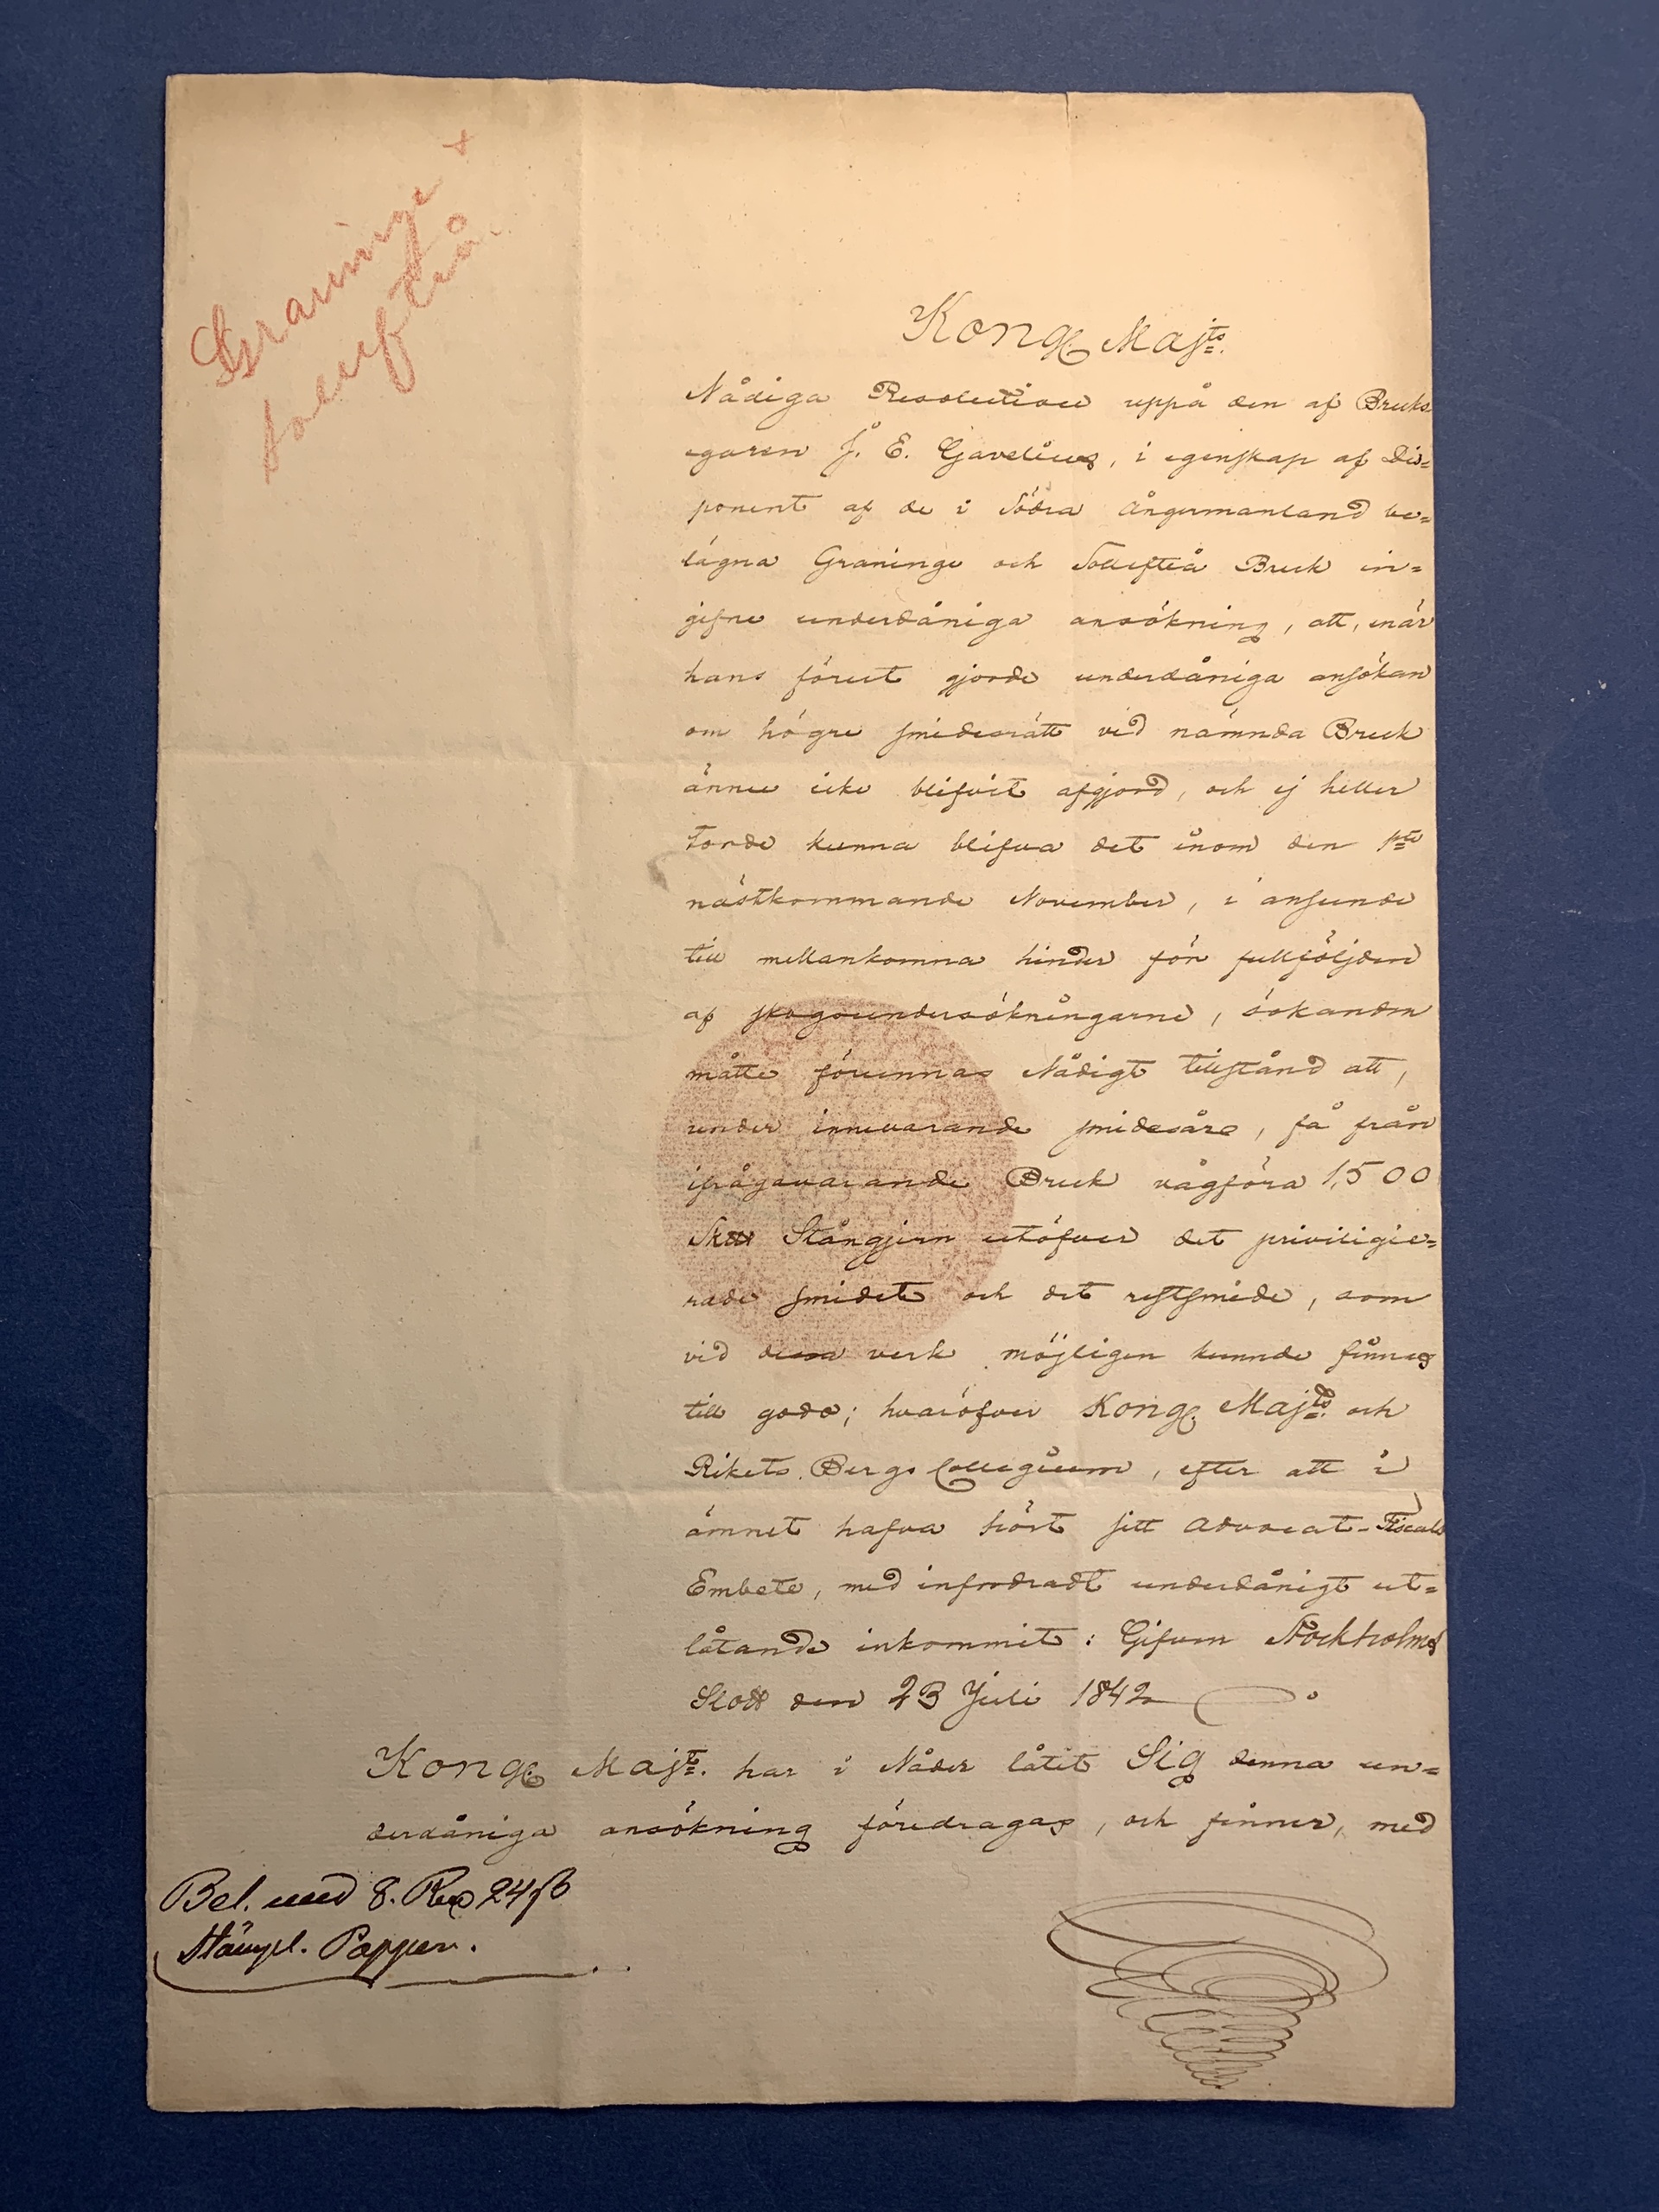 Graninge +
Sollefteå.
Kongl. Maj:ts
Nådiga Resolution uppå den af Bruks-
egaren J. E. Gavelius, i egenskap af Dis=
ponent af de i Södra Ångermanland be=
lägna Graninge och Sollefteå Bruk in=
gifne underdåniga ansökning, att, enär
hans förut gjorde underdåniga ansökan
om högre smidesrätt vid nämnda Bruk
ännu icke blifvit afgjord, och ej heller
torde kunna blifva det inom den 1ste
nästkommande November, i anseende
till mellankomna hinder för fullföljden
af skogsundersökningarne, sökanden
måtte förunnas Nådigt tillstånd att,
under innevarande smidesår, få från
ifrågavarande Bruk vågföra 1,500
Sk℔ Stångjern utöfver det priviligie=
rade smidet och det restsmide, som
vid dessa verk möjligen kunnde finnas
till godo; hvaröfver Kongl. Maj:ts och
Rikets Bergs Collegium, efter att i
ämnet hafva hört sitt Advocat-Fiscals
Embete, med infordradt underdånigt ut=
låtande inkommit: Gifven Stockholms
Slott den 23 Juli 1842
Kongl. Maj:t har i Nåder låtit Sig denna un=
derdåniga ansökning föredragas, och finner, med
Bel. med 8. Rd 24 sk
Stämpl. Papper.